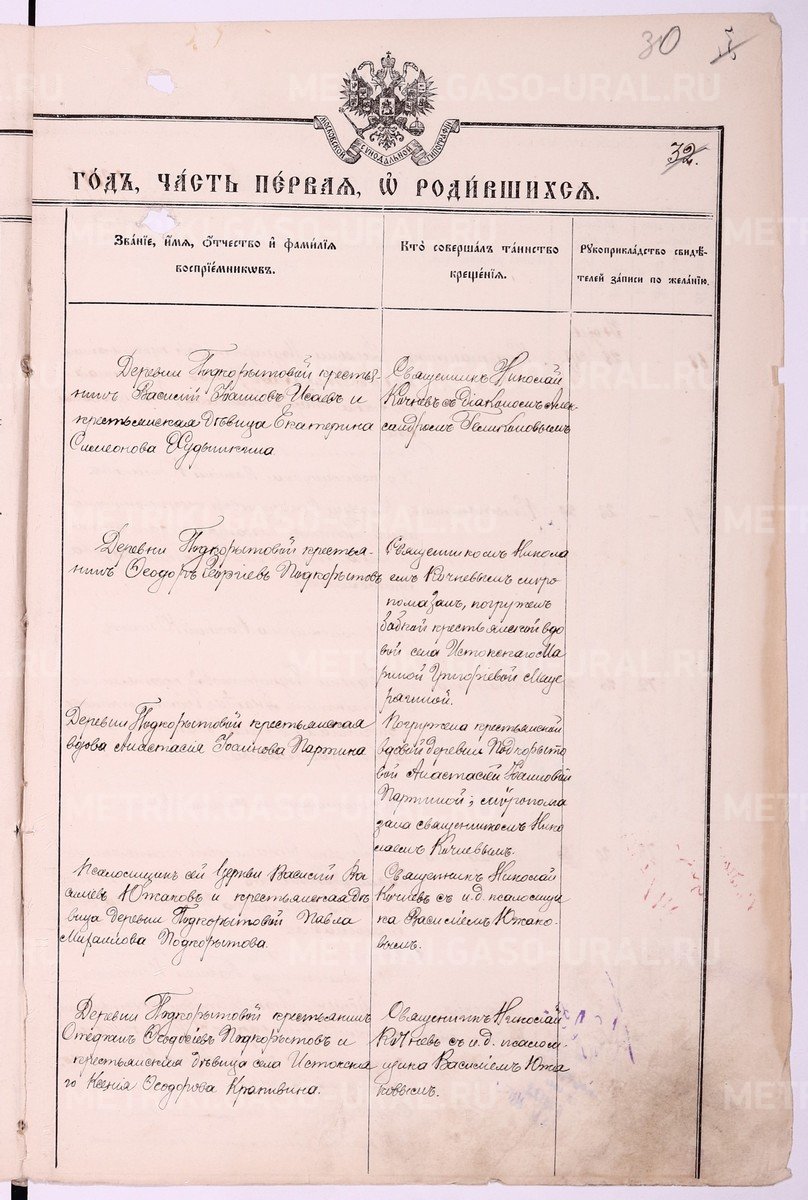 30
32.
МОСКОВСКОЙ СѴНОДАЛЬНОЙ ТИПОГРАФІИ
ГО́ДЪ, ЧА́СТЬ ПЕ́РВАЯ, Ѿ РОДИ́ВШИХСЯ.
Зва́нїе, и҆́мя, ѻ҆́тчество и҆ фами́лїя
воспрїе́мникѡвъ.
Кто̀ соверша́лъ та́инство
креще́нїя.
Рꙋкоприкла́дство свидѣ́-
телей за́писи по жела́нїю.
Деревни Подкорытовой крестья-
нинъ Василій Іоанновъ Исаевъ и
крестьянская дѣвица Екатерина
Симеонова Худышкина
Священникъ Николай
Кочневъ съ діакономъ Алек-
сандромъ Геликоновымъ
Деревни Подкорытовой крестья-
нинъ Ѳеодоръ Георгіевъ Подкорытовъ
Священникомъ Никола
емъ Кочневымъ муро
помазанъ, погруженъ
бабкой крестьянской вдо
вой села Истокскаго Ма
риной Григоріевой Маце
рачиной.
Деревни Подкорытовой крестьянская
вдова Анастасія Іоаннова Партина
Погружена крестьянской
вдовой деревни Подкорыто
вой Анастасіей Іоанновой
Партиной; муропома
зана священникомъ Нико
лаемъ Кочневымъ.
Псаломщикъ сей церкви Василій Ва
сильевъ Южаковъ и крестьянская дѣ
вица деревни Подкорытовой Павла
Михайлова Подкорытова.
Священникъ Николай
Кочневъ съ и.д. псаломщи
ка Василіемъ Южако-
вымъ.
Деревни Подкорытовой крестьянинъ
Стефанъ Ѳеодосіевъ Подкорытовъ и
крестьянская дѣвица села Истокска
го Ксенія Ѳеодорова Крапивина.
Священникъ Николай
Кочневъ съ и.д. псалом-
щика Василіемъ Южа
ковымъ.
METRIKI.GASO-URAL.RU